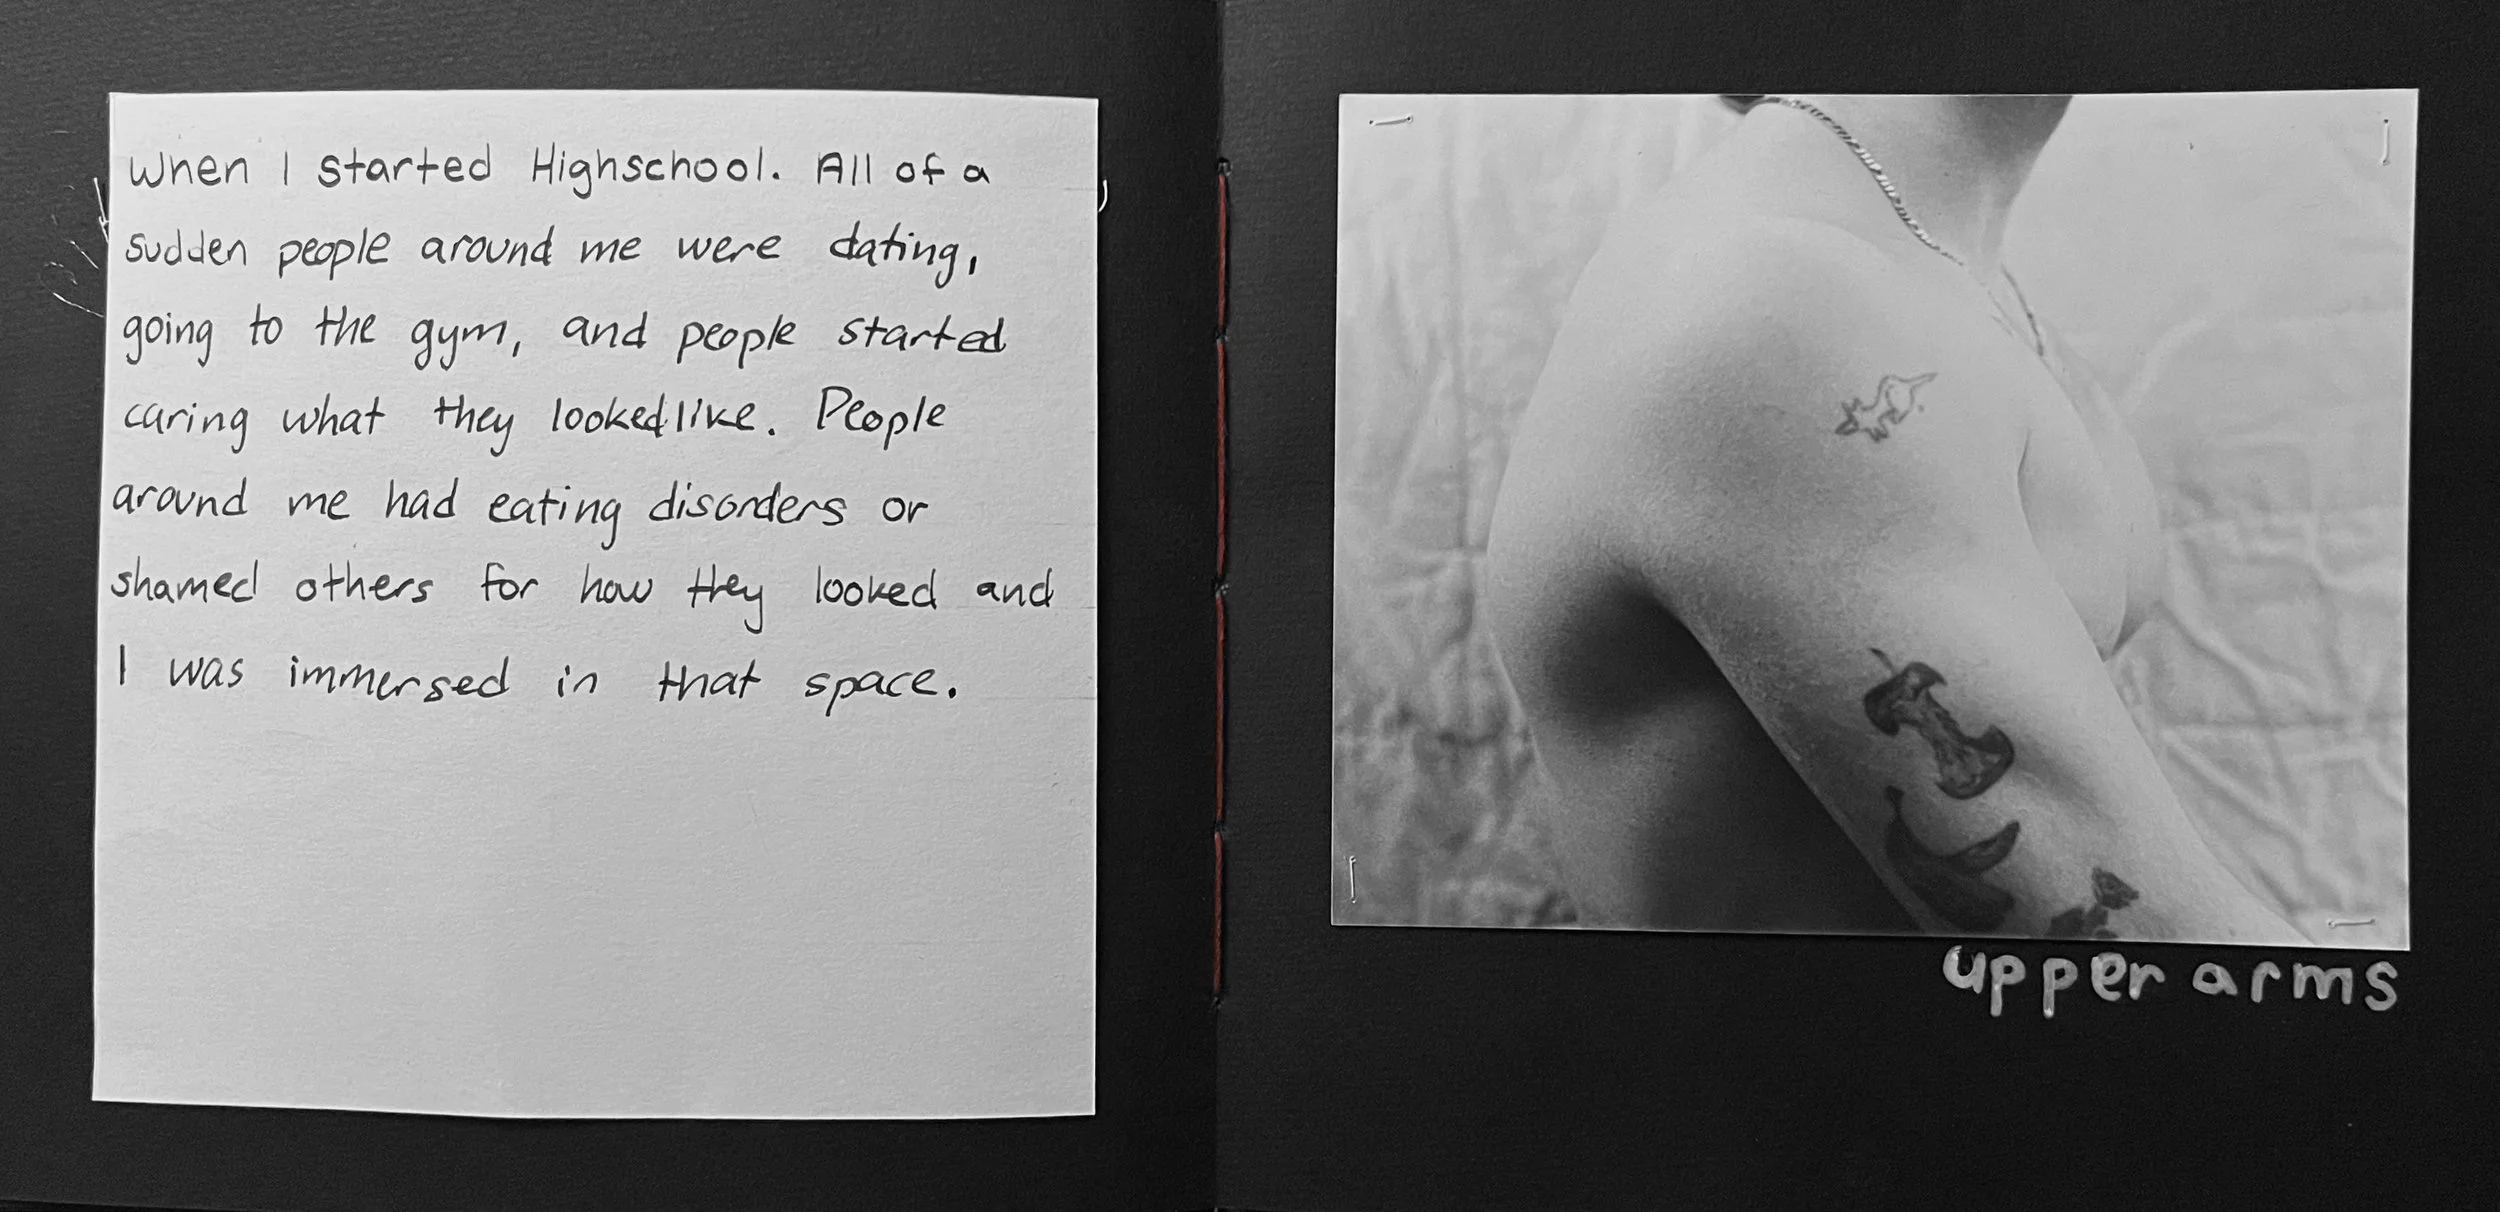 When I started Highschool. All of a
sudden people around me were dating,
going to the gym, and people started
caring what they looked like. People
around me had eating disorders or
shamed others for how they looked and
I was immersed in that space.
upper arms